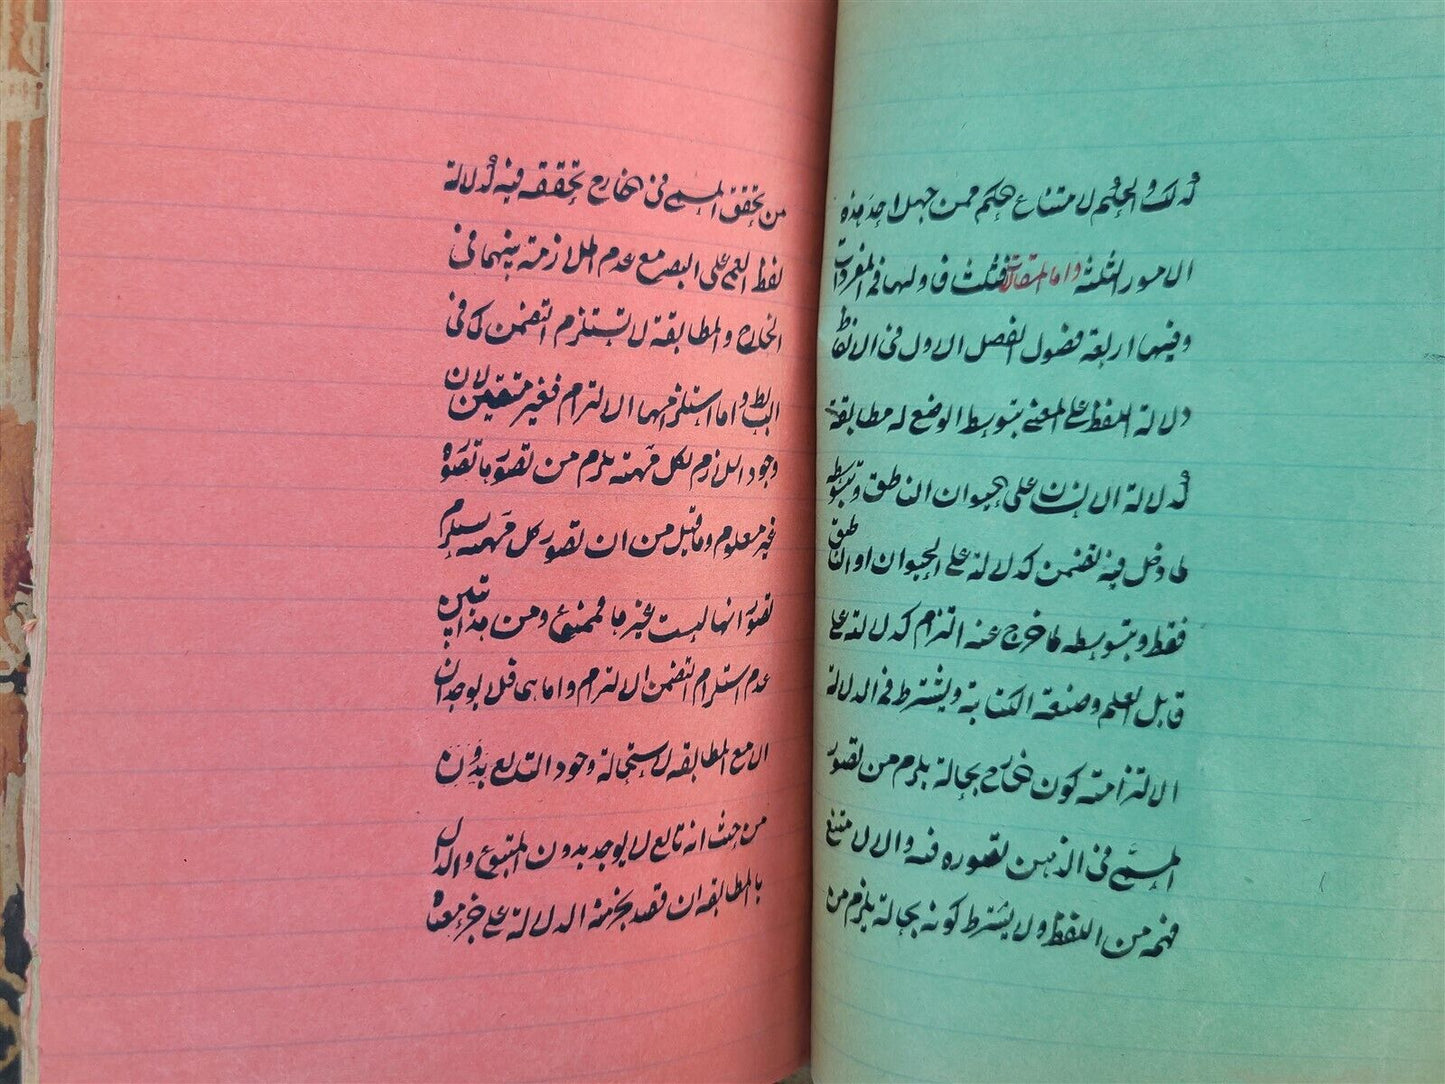 ذلك والحكم لامتناع الحكم ممن جهل احد هذه
الامور الثلثة واما المقالات فثلث فاوليها فى المفردات
وفيها اربعة فصول الفصل الاول فى الالفاظ
دلالة اللفظ على المعنى بتوسط الوضع له مطابقة
كدلالة الانسان على الحيوان الناطق وبتوسطه
لما دخل فيه تضمن كدلالته على الحيوان او الناطق
فقط وبتوسطه لما خرج عنه التزام كدلالته على
قابل العلم وصنعة الكتابة ويشترط فى الدلالة
الالتزامية كون الخارج بحالة يلزم من تصور
المسمى فى الذهن تصوره فيه والا لامتنع
فهمه من اللفظ ولا يشترط كونه بحالة يلزم من
من تحقق المسمى فى الخارج تحققه فيه كدلالة
لفظ العمى على البصر مع عدم الملازمة بينهما فى
الخارج والمطابقة لا تستلزم التضمن كما فى
البسائط واما استلزامها الالتزام فغير متيقن لان
وجود اللازم لكل مهية يلزم من تصورها تصوره
غير معلوم وما قيل من ان تصور كل مهية يستلزم
تصور انها ليست غيرها فممنوع ومن هذا تبين
عدم استلزام التضمن الالتزام واما هما فلا يوجدان
الا مع المطابقة لاستحالة وجود التابع بدون
من حيث انه تابع لا يوجد بدون المتبوع والدال
بالمطابقة ان قصد بجزئه الدلالة على جزء معناه